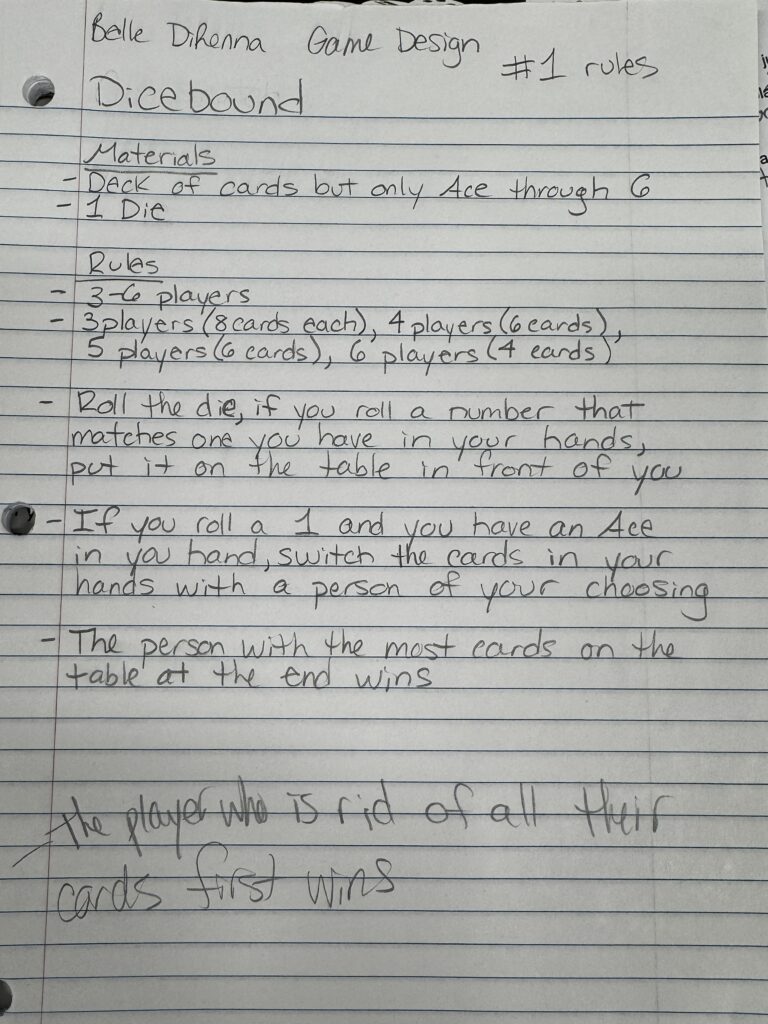 Belle DiRenna Game Design
#1 rules
Dicebound
Materials
- Deck of cards but only Ace through 6
- 1 Die
Rules
- 3-6 players
- 3 players (8 cards each), 4 players (6 cards),
5 players (6 cards), 6 players (4 cards)
- Roll the die, if you roll a number that
matches one you have in your hands,
put it on the table in front of you
- If you roll a 1 and you have an Ace
in you hand, switch the cards in your
hands with a person of your choosing
- The person with the most cards on the
table at the end wins
- the player who is rid of all their
cards first wins